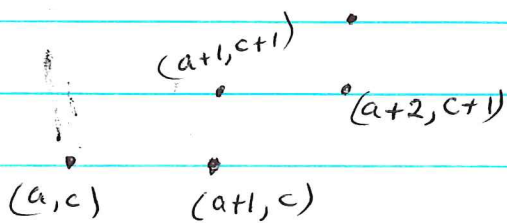 (a+1, c+1)
(a+2, c+1)
(a, c)
(a+1, c)